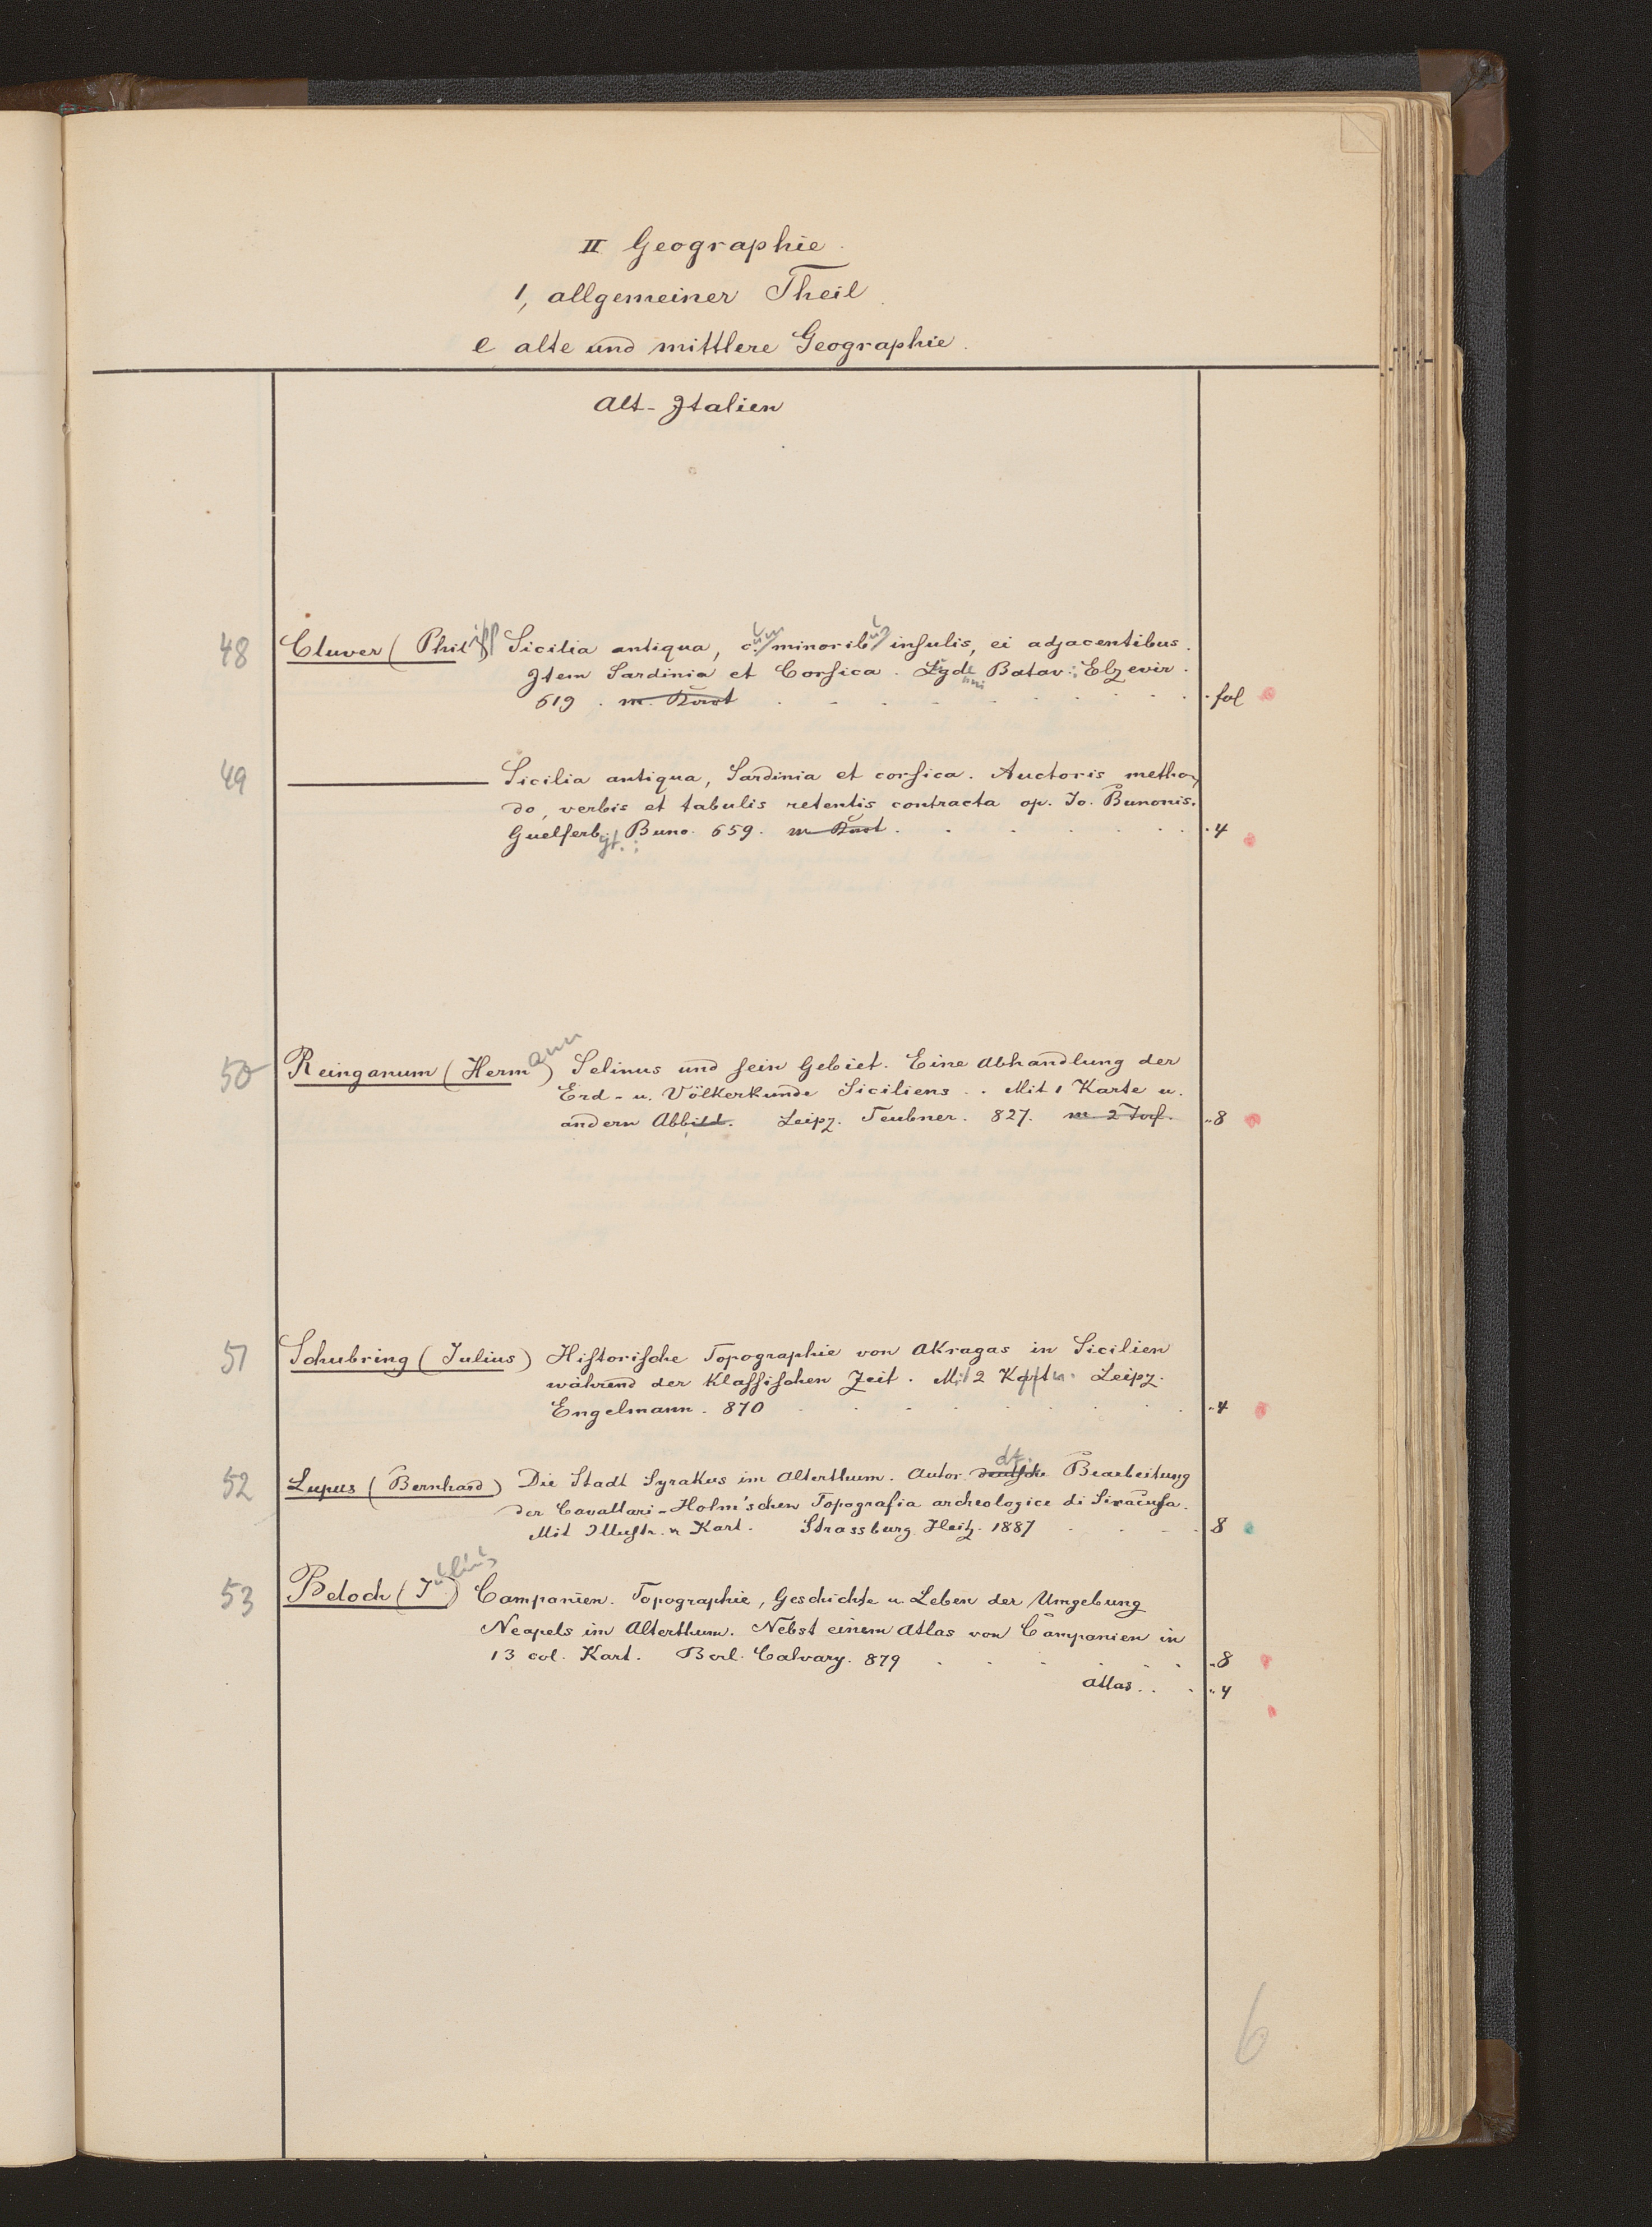 II Geographie.
1, allgemeiner Theil.
e alte und mittlere Geographie.
Alt-Italien
48 Cluver (Philipp) Sicilia antiqua, cum minoribus insulis, ei adjacentibus.
Item Sardinia et Corsica. Lugduni Batav.: Elzevir.
619. m. Port . fol
49 ——— Sicilia antiqua, Sardinia et corsica. Auctoris metho-
do, verbis et tabulis retentis contracta op. Jo. Bunonis.
Guelferbyt.: Buno. 659. m Port . 4
50 Reinganum (Hermann) Selinus und sein Gebiet. Eine Abhandlung der
Erd- u. Völkerkunde Siciliens.. Mit 1 Karte u.
andern Abbild. Leipz. Teubner. 827. m 2 Taf. 8
51 Schubring (Julius) Historische Topographie von Akragas in Sicilien
während der klassischen Zeit. Mit 2 Leipz.
Engelmann. 870 . 4
52 Lupus (Bernhard) Die Stadt Syrakus im Alterthum. Autor. deutsche dt. Bearbeitung
der Cavallari-Holm'schen Topografia archeologice di Siracusa.
Mit Illustr. u Kart. Strassburg Heitz. 1887 . 8
53 Beloch (Julius) Campanien. Topographie, Geschichte u. Leben der Umgebung
Neapels im Alterthum. Nebst einem Atlas von Campanien in
13 col. Kart. Berl. Calvary. 879 . 8
Atlas . . 4
6